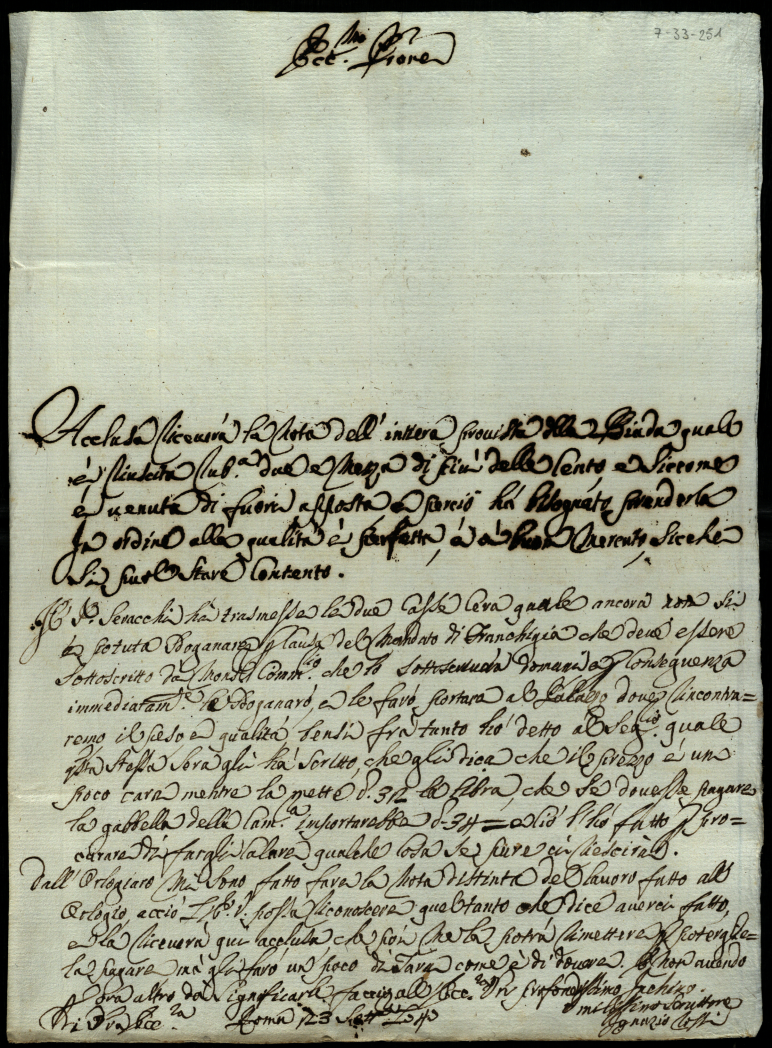 7-33-251
Ecc.mo Sig.re
Aclusa riceverà la Nota dell'intera provista della Biada quale
è riuscita Rub.a due e Mezza di più delle Cento e Siccome
è venuta di fuori apposta e perciò hà bisognato prenderla
In ordine alla qualità è perfetta, e à buon Mercato, Sicche
Si puol Stare Contento.
Il Sr. Seracchi hà trasmesse le due Casse Cera quale ancora non Si
è potuta Doganare p causa del Mandato di Franchigia che deve essere
Sottoscritto da Mons.r Comm.rio che lo Sottoscriverà domani e p Conseguenza
immediatam.e la Doganarò, e le farò portare al Palazzo dove rincontra=
remo il peso e qualità bensì frà tanto hò detto al Seg.rio quale
qsta Stessa Sera gli hà scritto, che gli dica che il prezzo è un
poco caro mentre la mette d. 32 la libra che Se dovesse pagare
la gabbella della Cam.a importarebbe d. 34 = e ciò l'hò fatto p pro=
curare di fargli calare qualche cosa se pure ci riescirà.
Dall'Orlogiaro Mi Sono fatto fare la Nota distinta del lavoro fatto all
Orlogio, acciò possa riconoscere quel tanto che dice averci fatto,
e la riceverà qui aclusa che poi Me la potrà rimettere p poterglie=
la pagare mà gli farò un poco di Tara come è di dovere. E Non avendo
p ora altro da Significarle faccio all'Ecc.za Vra profondissimo inchino.
Di Vra Ecc.za Roma 23 Sett.e
Umilissimo Servitore
Ignazio